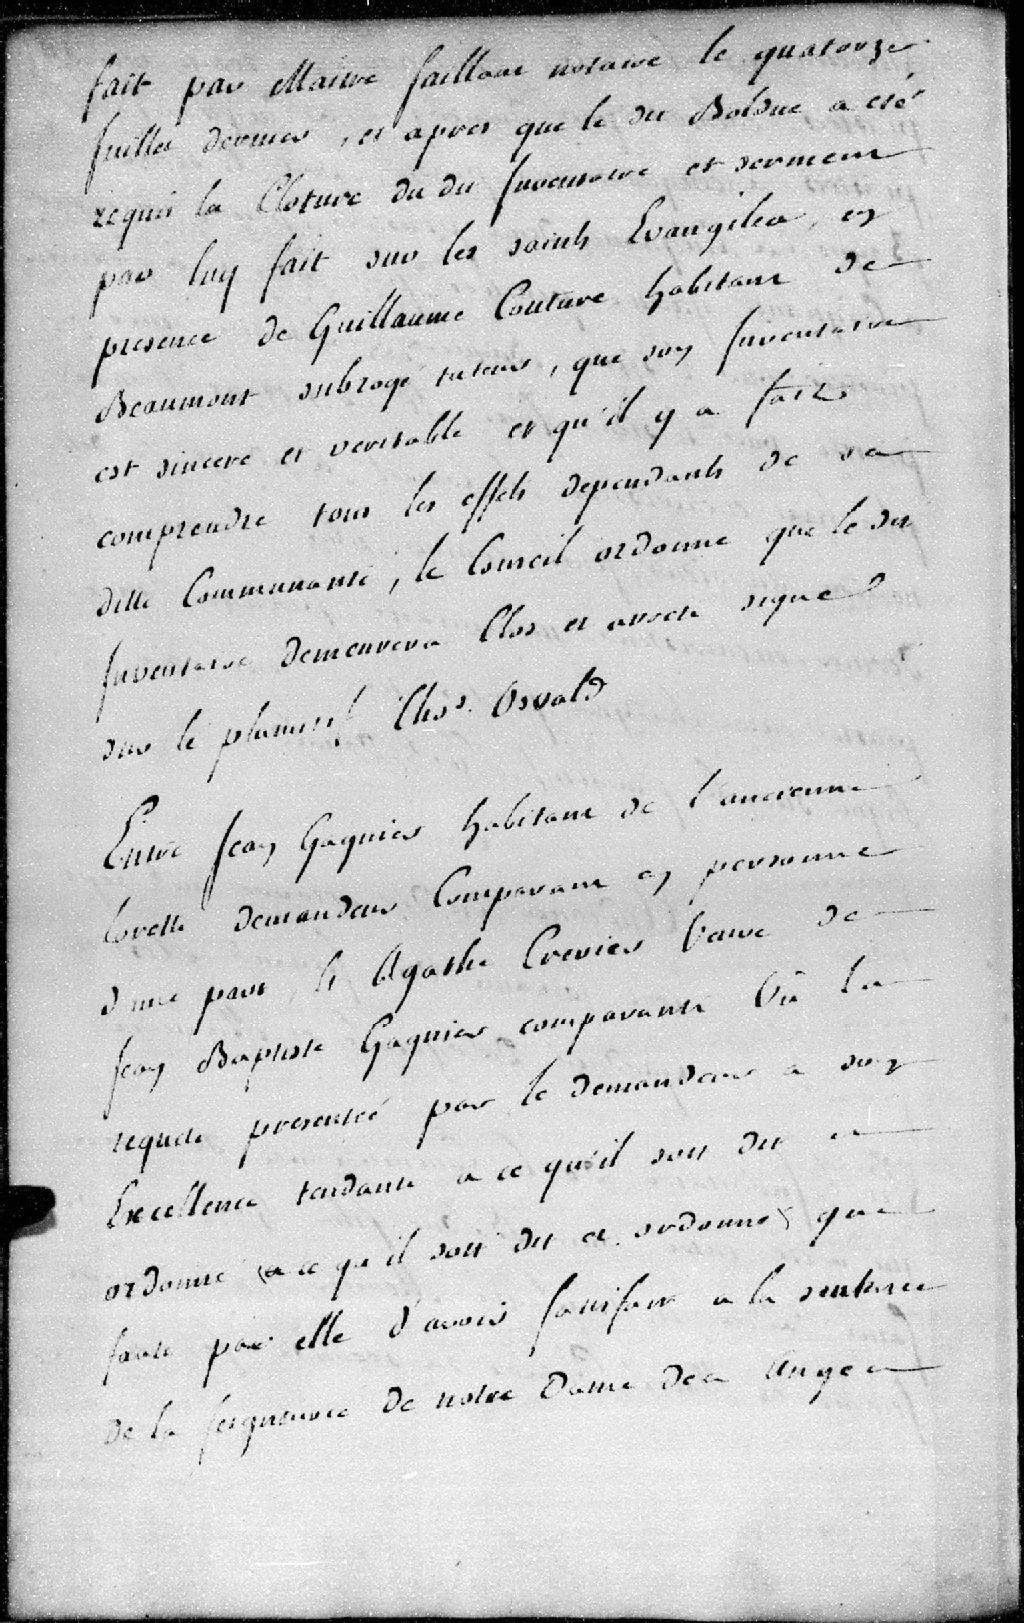 fait par Maitre Saillant notaire le quatorze
Juillet dernier, et apres que le dit Bolduc a eté
requis la Cloture du dit Inventaire et serment
par luy fait sur les saints Evangiles, en
presence de Guillaume Couture habitant de
Beaumont subrogé tuteur, que son Inventaire
est sincere et veritable et qu'il y a fait
comprendre tous les effets dependants de sa
ditte Communauté, le Conseil ordonne que le dit
Inventaire demeurera Clos et arreté signé
sur le plumitif Chs. Osvald
Entre Jean Gagnier habitant de l'ancienne
Lorette demandeur Comparant en personne
d'une part, et Agathe Crevier Veuve de
Jean Baptiste Gagnier comparante Vû la
requete presenteé par le demandeur a son
Excellence tendante a ce qu'il soit dit et
ordonné (a ce qu'il soit dit et ordonné) que
faute par elle d'avoir satisfait a la sentence
de la seigneurie de notre Dame des Anges